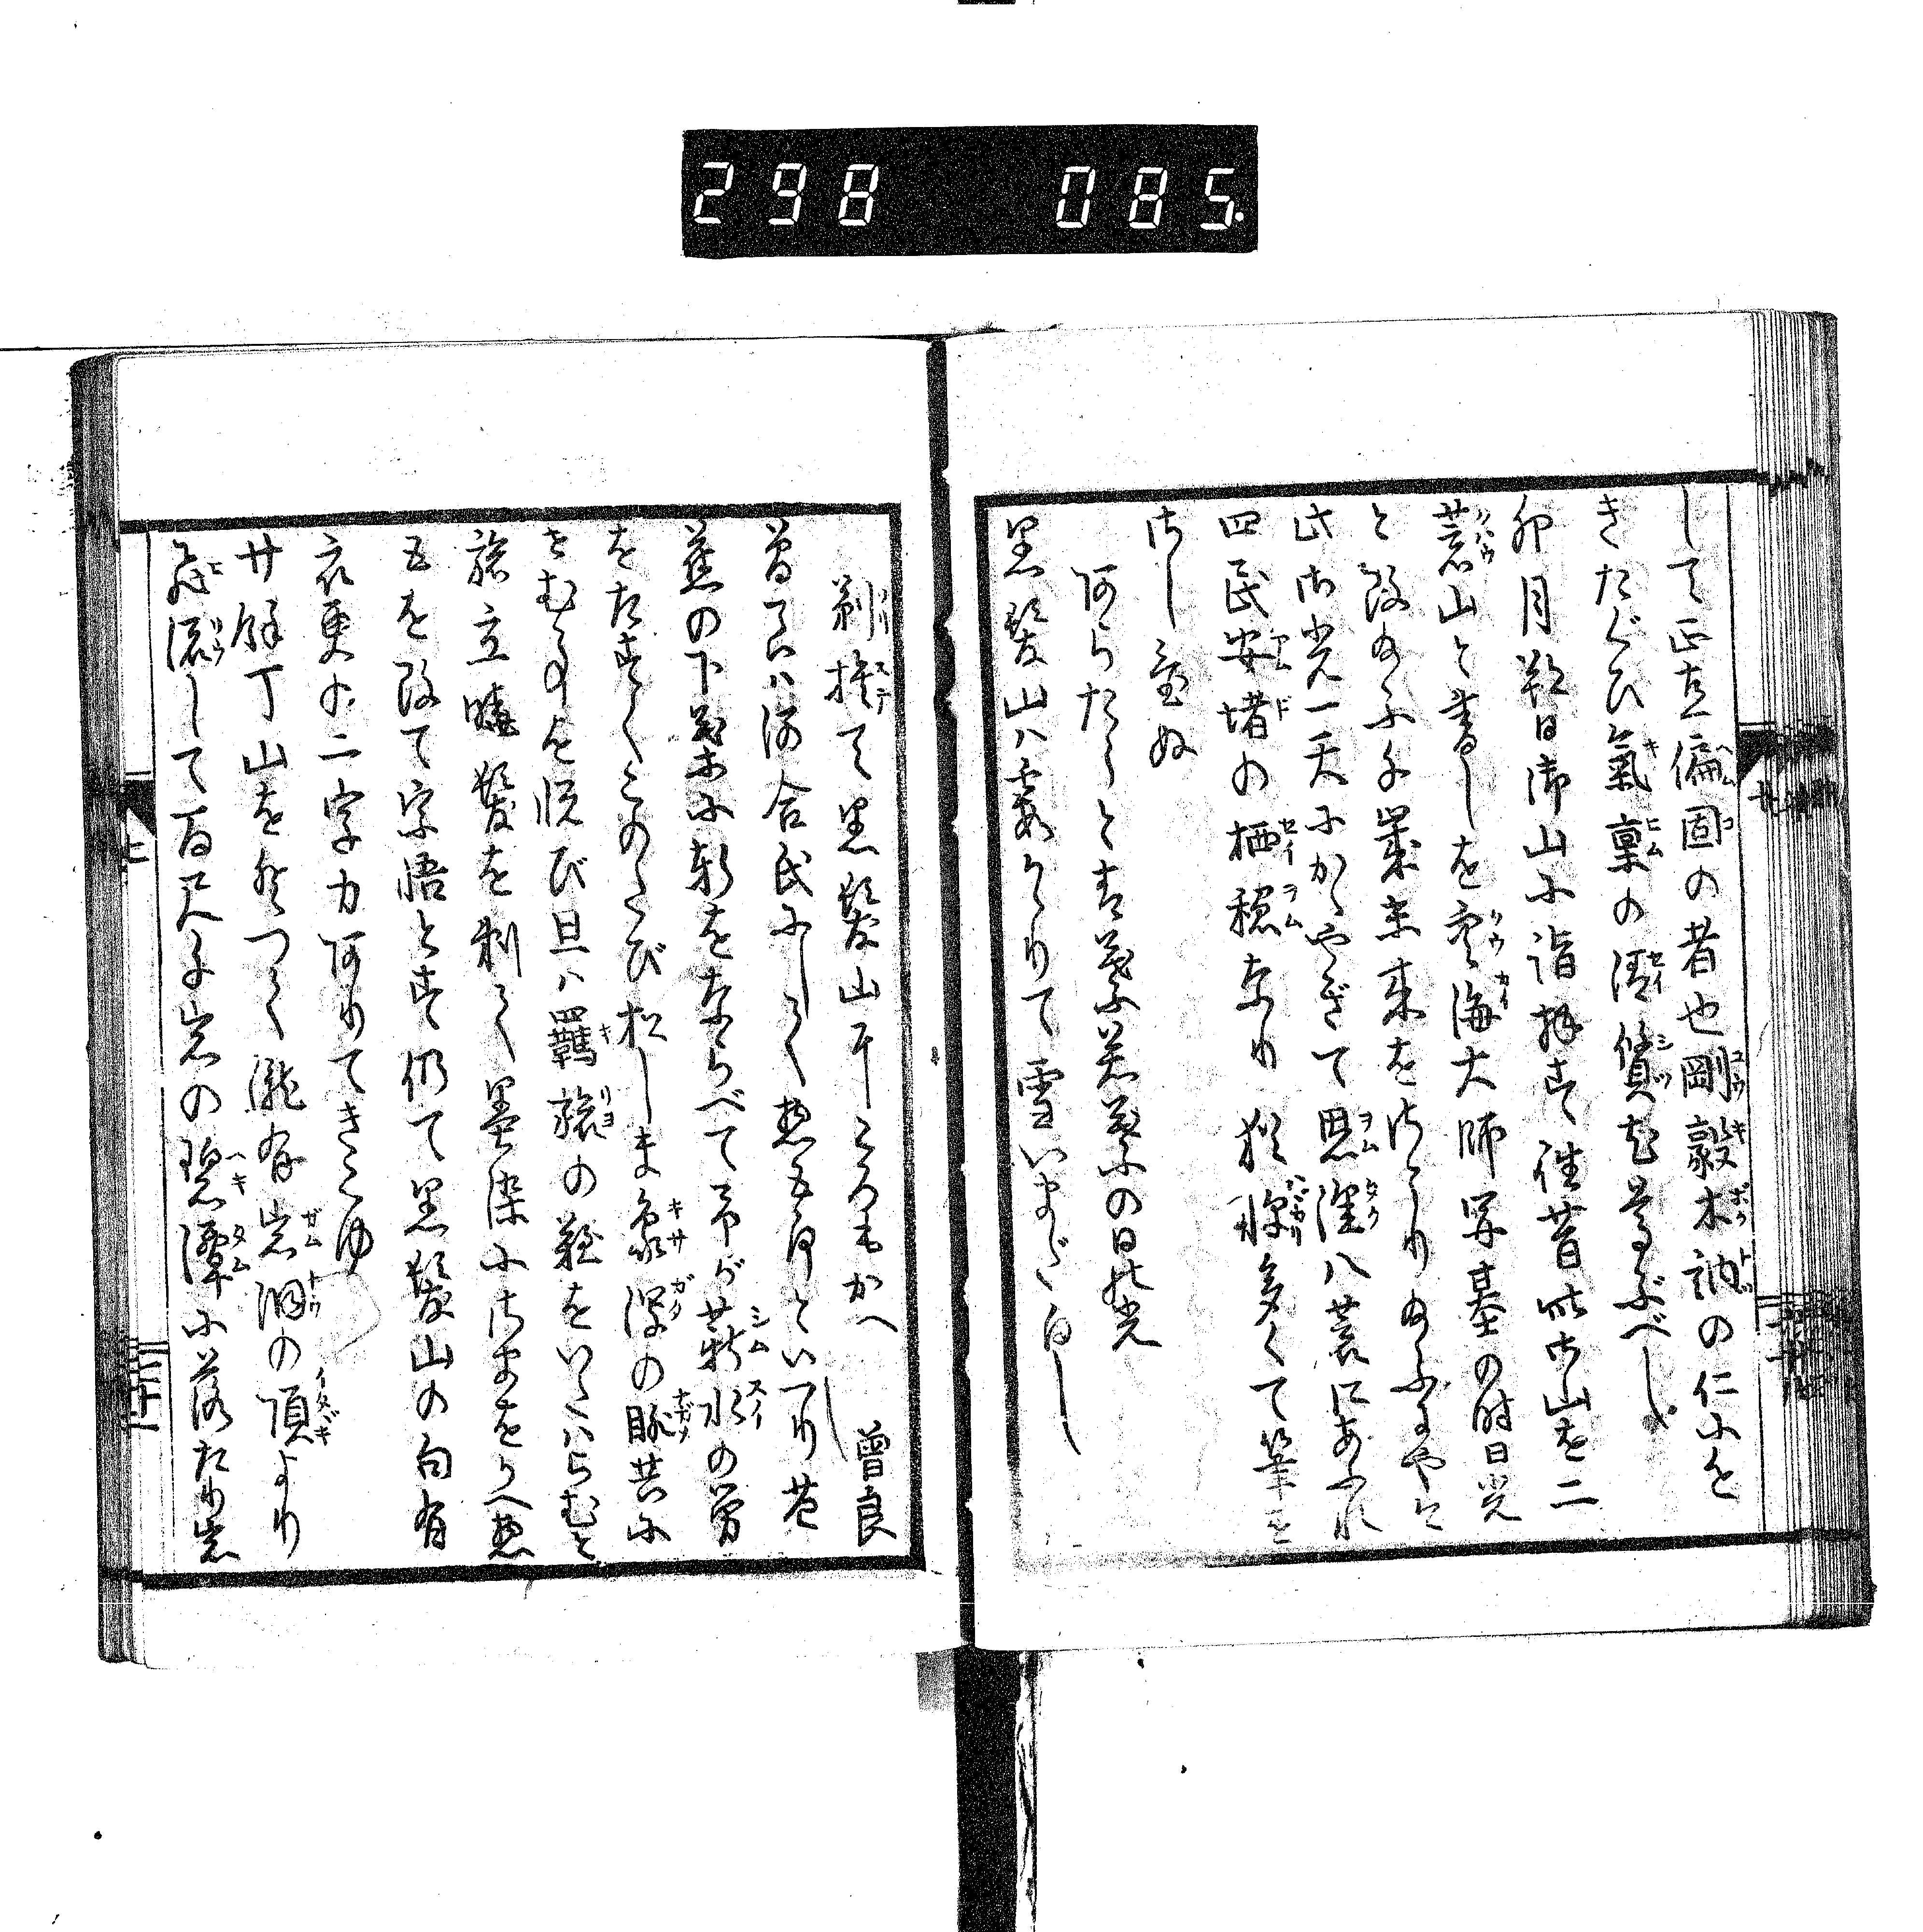 298 085.
して正直偏固の者也剛毅木訥の仁に近
きたぐひ氣稟の清質尤尊ぶべし
卯月朔日御山に詣拝す往昔此御山を二
荒山と書しを空海大師開基の時日光
と改給ふ千歳未来をさとり給ふにやと
此御光一天にかゝやきて恩澤八荒にあふれ
四民安堵の栖穏なり猶憚多くて筆を
さし置ぬ
あらたうと青葉若葉の日の光
黒髪山は霞かゝりて雪いまだ白し
剃捨て黒髪山にころもかへ 曽良
曽良は河合氏にして惣五良といへり芭
蕉の下葉に軒をならべて予が薪水の労
をたすくこのたび松しま象潟の眺共に
せむ事を悦び且は羈旅の難をいたはらむと
旅立暁髪を剃て墨染にさまをかへ惣
五を改て宗悟とす仍て黒髪山の句有
衣更の二字力ありてきこゆ
廿餘丁山を登つて瀧有岩洞の頂より
飛流して百尺千岩の碧潭に落たり岩
上
二十一